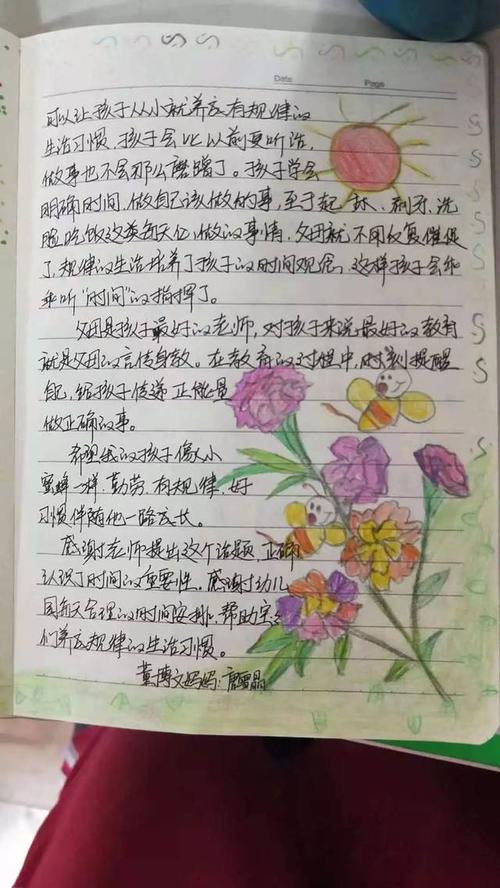 Date
Page
可以让孩子从小就养成有规律的
生活习惯，孩子会比以前更听话，
做事也不会那么磨蹭了。孩子学会
明确时间，做自己该做的事，至于起床、刷牙、洗
脸、吃饭这类每天必做的事情，父母就不用反复催促
了，规律的生活培养了孩子的时间观念，这样孩子会乖
乖听“时间”的指挥了。
父母是孩子最好的老师，对孩子来说最好的教育
就是父母的言传身教。在教育的过程中，时刻提醒
自己，给孩子传递正能量
做正确的事。
希望我的孩子像小
蜜蜂一样，勤劳、有规律，好
习惯伴随他一路成长。
感谢老师提出这个话题，正确
认识了时间的重要性，感谢幼儿
园每天合理的时间安排，帮助宝
们养成规律的生活习惯。
董博文妈妈：